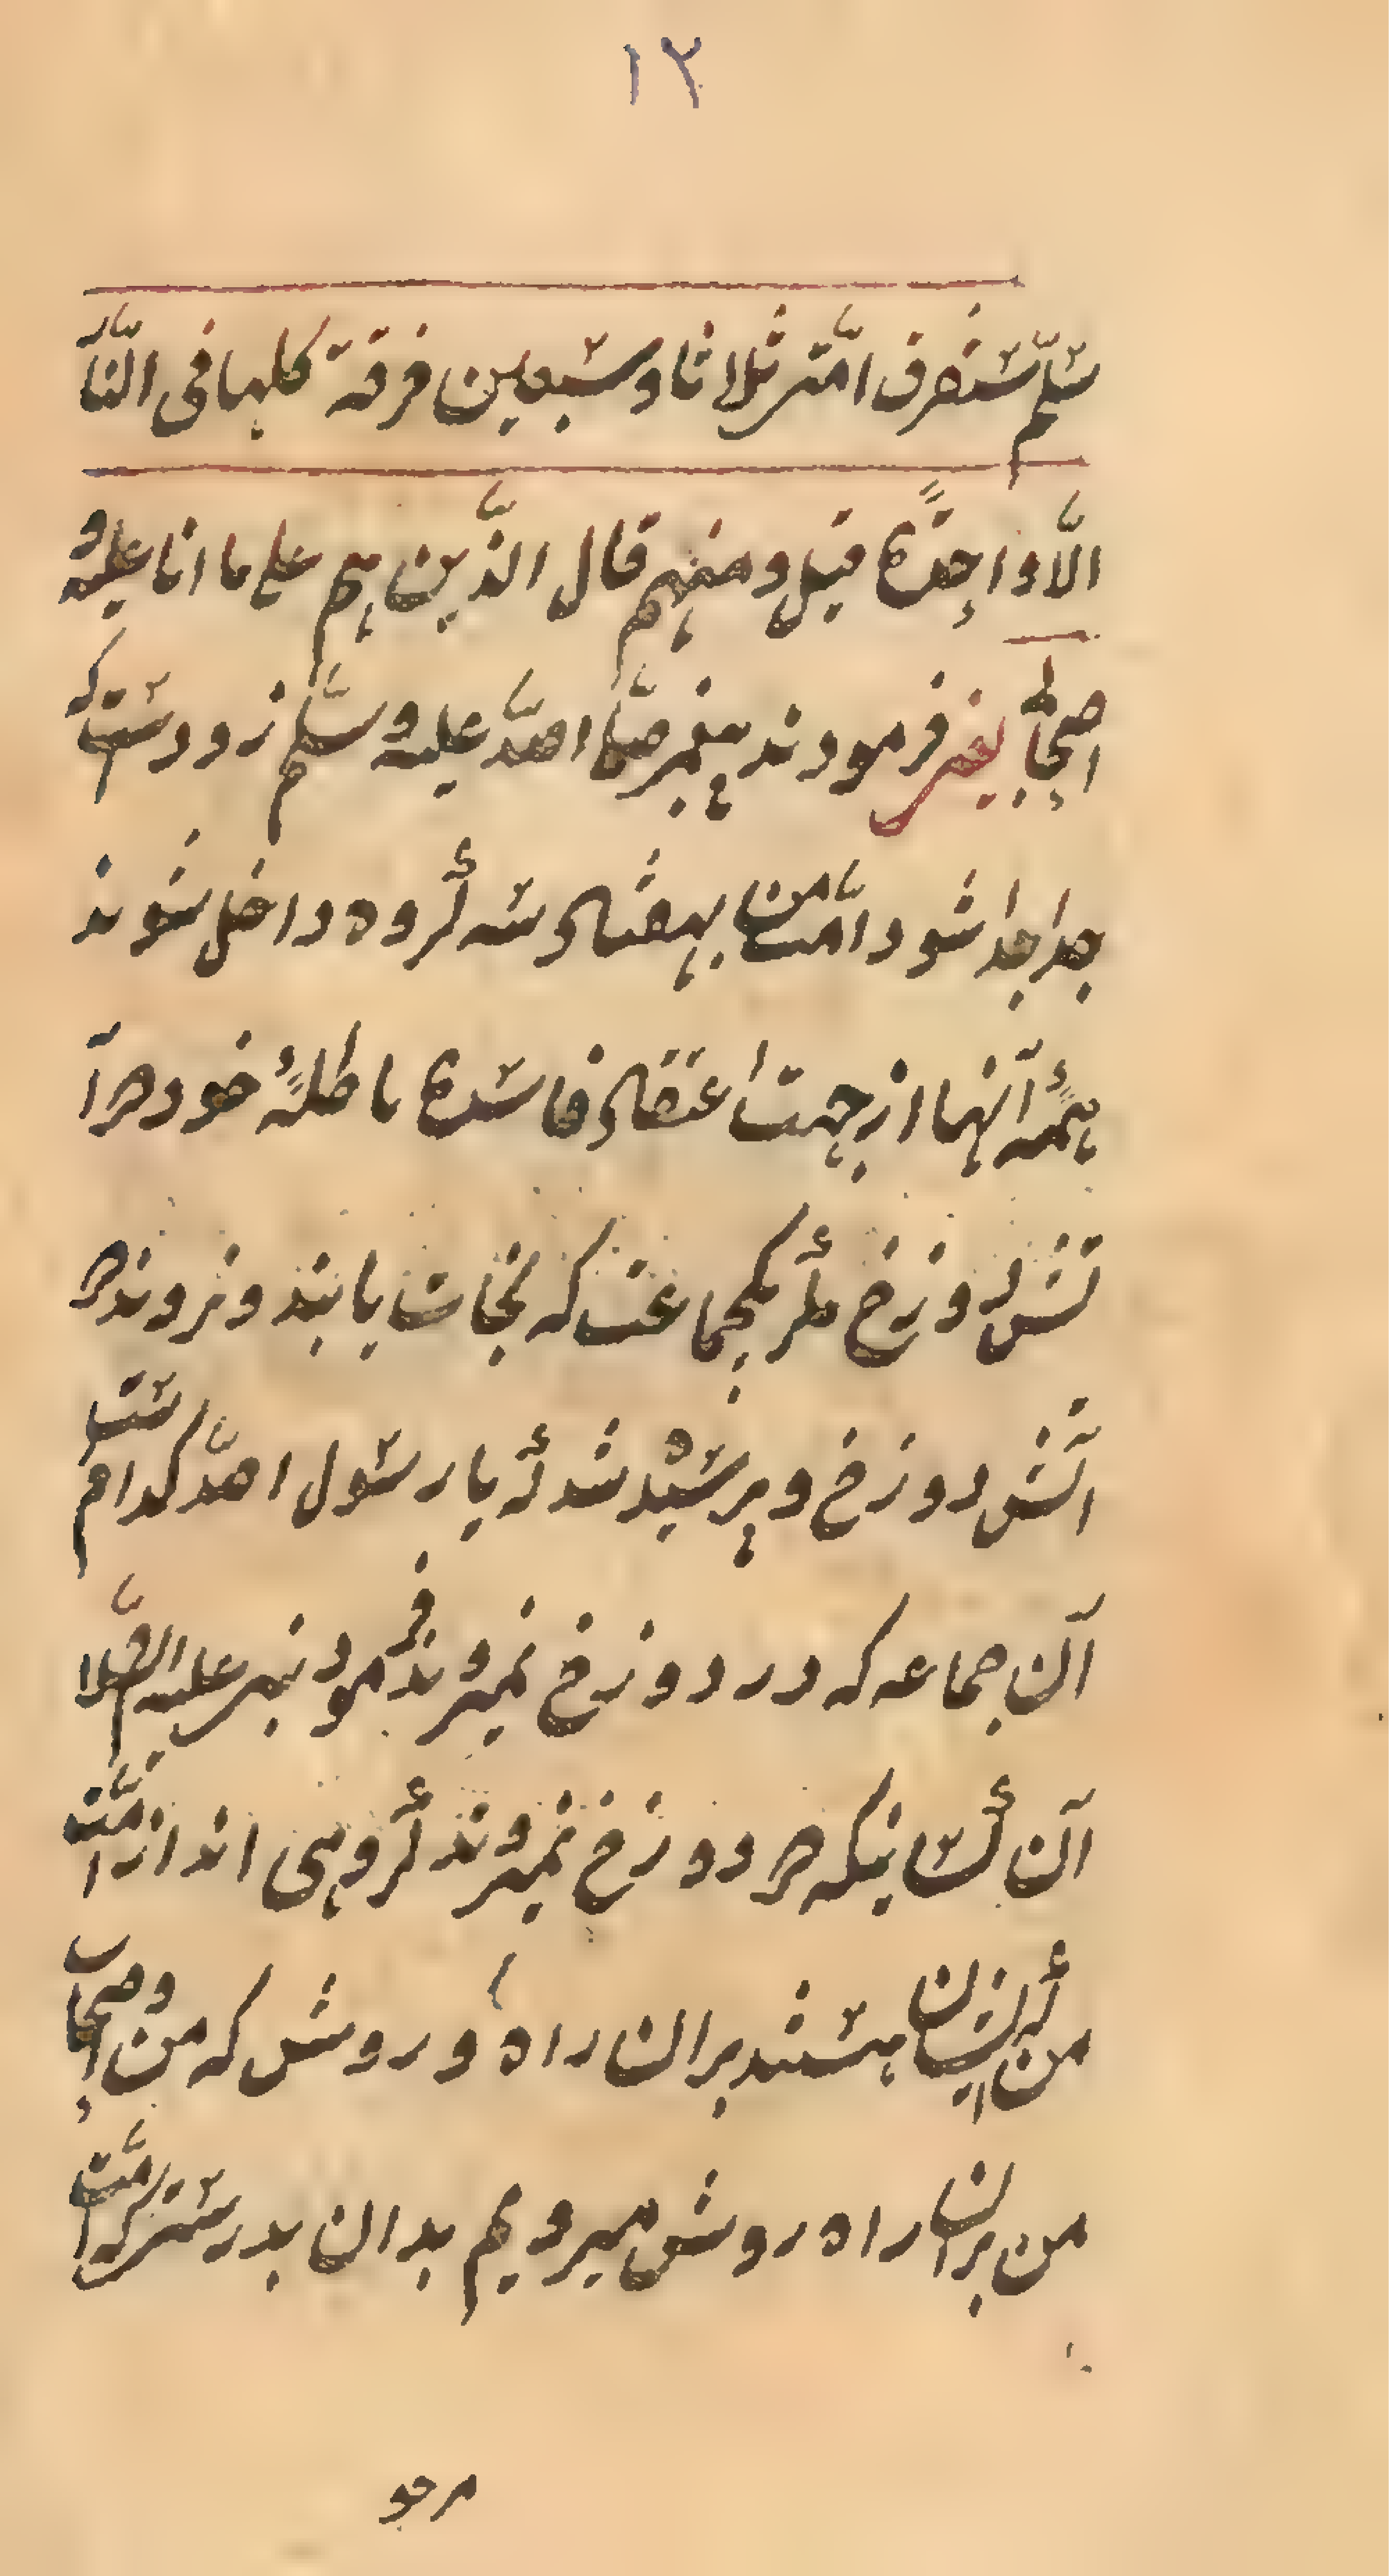 ١٢
سلّم ستفرق امّتی ثلاثا و سبعین فرقة کلها فی النّار
الّا واحدةً قیل و منهم قال الّذین هم علی ما انا علیه و
اصحابی یعنی فرمودند پیغمبر صلّی اللّه علیه و سلّم زود است که
جدا جدا شود امّتان من بهفتاد سه گروه داخل شوند
همهٔ آنها از جهت اعتقاد فاسده باطلهٔ خود در آ
تش دوزخ مگر یکجماعت که نجات یابند و نروند در
آتش دوزخ و پرسید شد که یا رسول اللّه کدام است
آن جماعه که در دوزخ نمیروند فرمود پیغمبر علیه الصّلا
آن کسانیکه در دوزخ نمیروند گروهی اند از امّت
من که ایشان هستند بران راه و روش که من و اصحاب
من بران راه روش میرویم بدان بدرستیکه امّت
مرحو